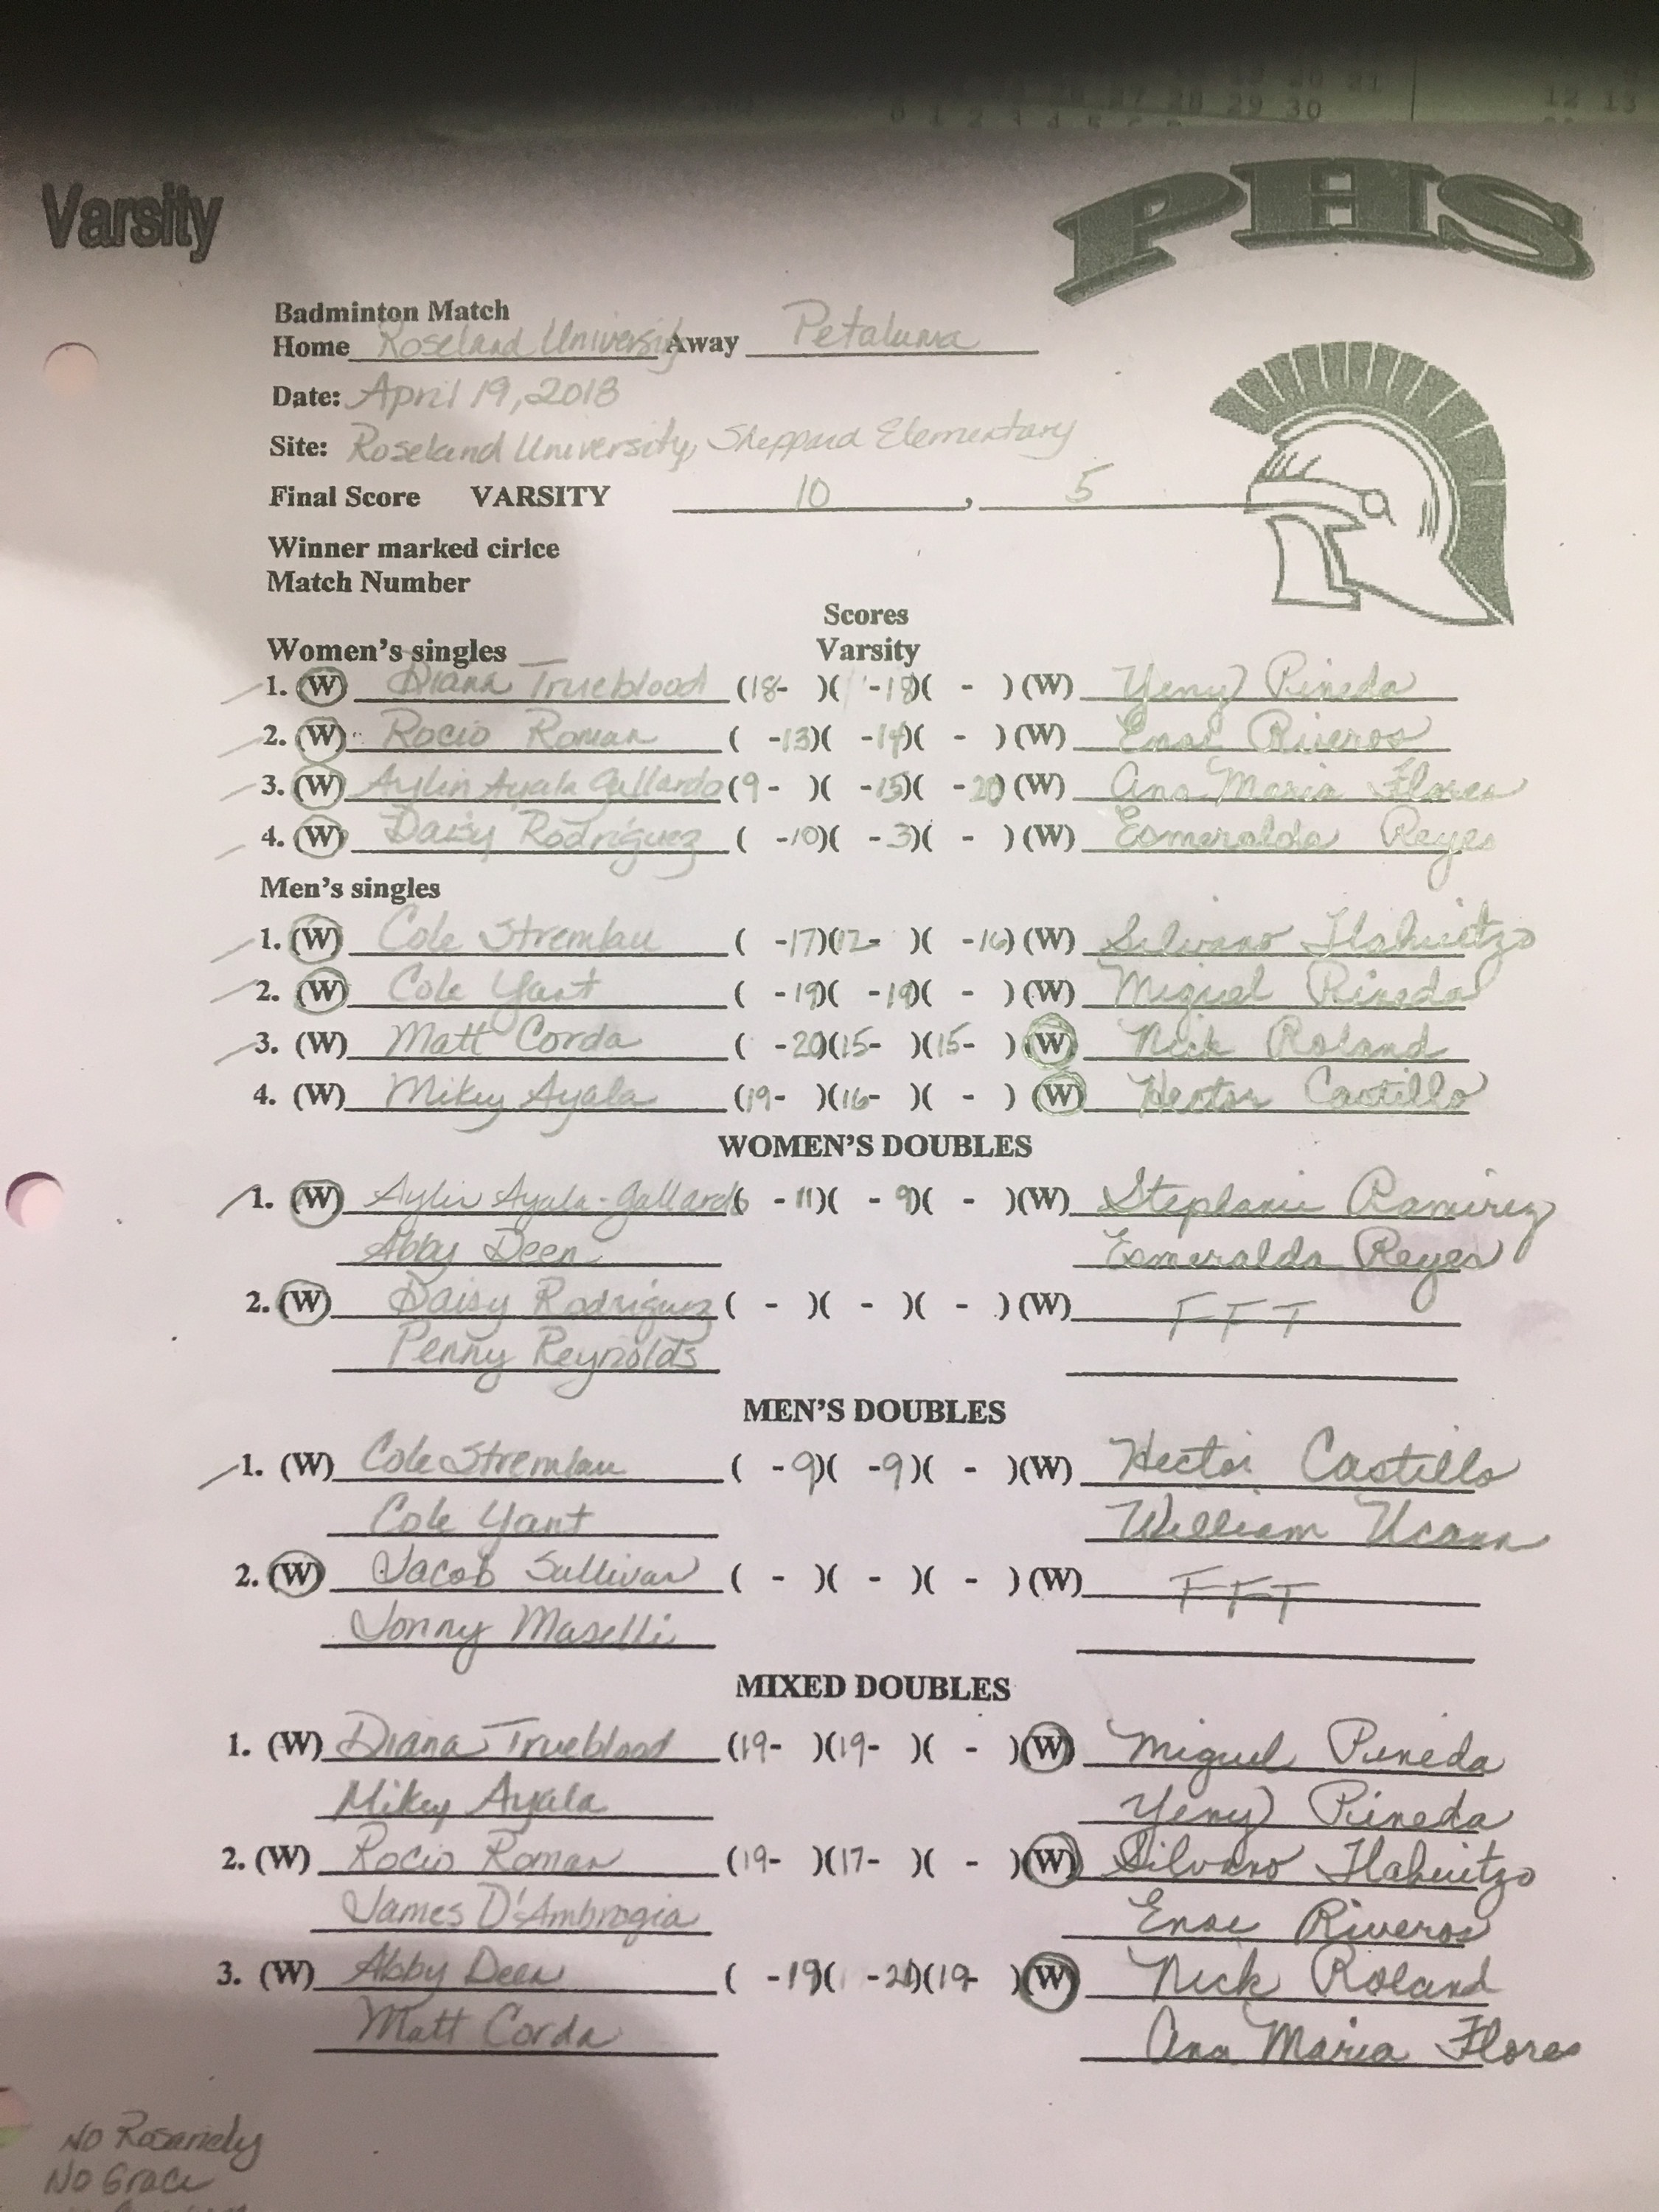 Varsity
PHS
Badminton Match
Home Roseland University Away Petaluma
Date: April 19, 2018
Site: Roseland University, Sheppard Elementary
Final Score VARSITY 10 , 5
Winner marked cirlce
Match Number
Scores
Women's singles Varsity
1. (W) Diana Trueblood (18- )( -18)( - ) (W) Yeny Pineda
2. (W) Rocio Roman ( -13)( -14)( - ) (W) Riveros
3. (W) Aylin Ayala Gallardo (9- )( -15)( -20) (W) Ana Maria Flores
4. (W) Daisy Rodriguez ( -10)( -3)( - ) (W) Esmeralda Reyes
Men's singles
1. (W) Cole Stremlau ( -17)(12- )( -16) (W) Silvano Tlahuitzo
2. (W) Cole Yant ( -19)( -19)( - ) (W) Miguel Pineda
3. (W) Matt Corda ( -20)(15- )(15- ) (W) Nick Roland
4. (W) Mikey Ayala (19- )(16- )( - ) (W) Hector Castillo
WOMEN'S DOUBLES
1. (W) Aylin Ayala-Gallardo ( - 11)( - 9)( - )(W) Stephanie Ramirez
Abby Deen Esmeralda Reyes
2. (W) Daisy Rodriguez ( - )( - )( - ) (W) FFT
Penny Reynolds
MEN'S DOUBLES
1. (W) Cole Stremlau ( -9)( -9)( - )(W) Hector Castillo
Cole Yant William
2. (W) Jacob Sullivan ( - )( - )( - ) (W) FFT
Jonny Maselli
MIXED DOUBLES
1. (W) Diana Trueblood (19- )(19- )( - )(W) Miguel Pineda
Mikey Ayala Yeny Pineda
2. (W) Rocio Roman (19- )(17- )( - )(W) Silvano Tlahuitzo
James D'Ambrogia Riveros
3. (W) Abby Deen ( -19)( -21)(19- )(W) Nick Roland
Matt Corda Ana Maria Flores
NO Rosariely
NO Grace